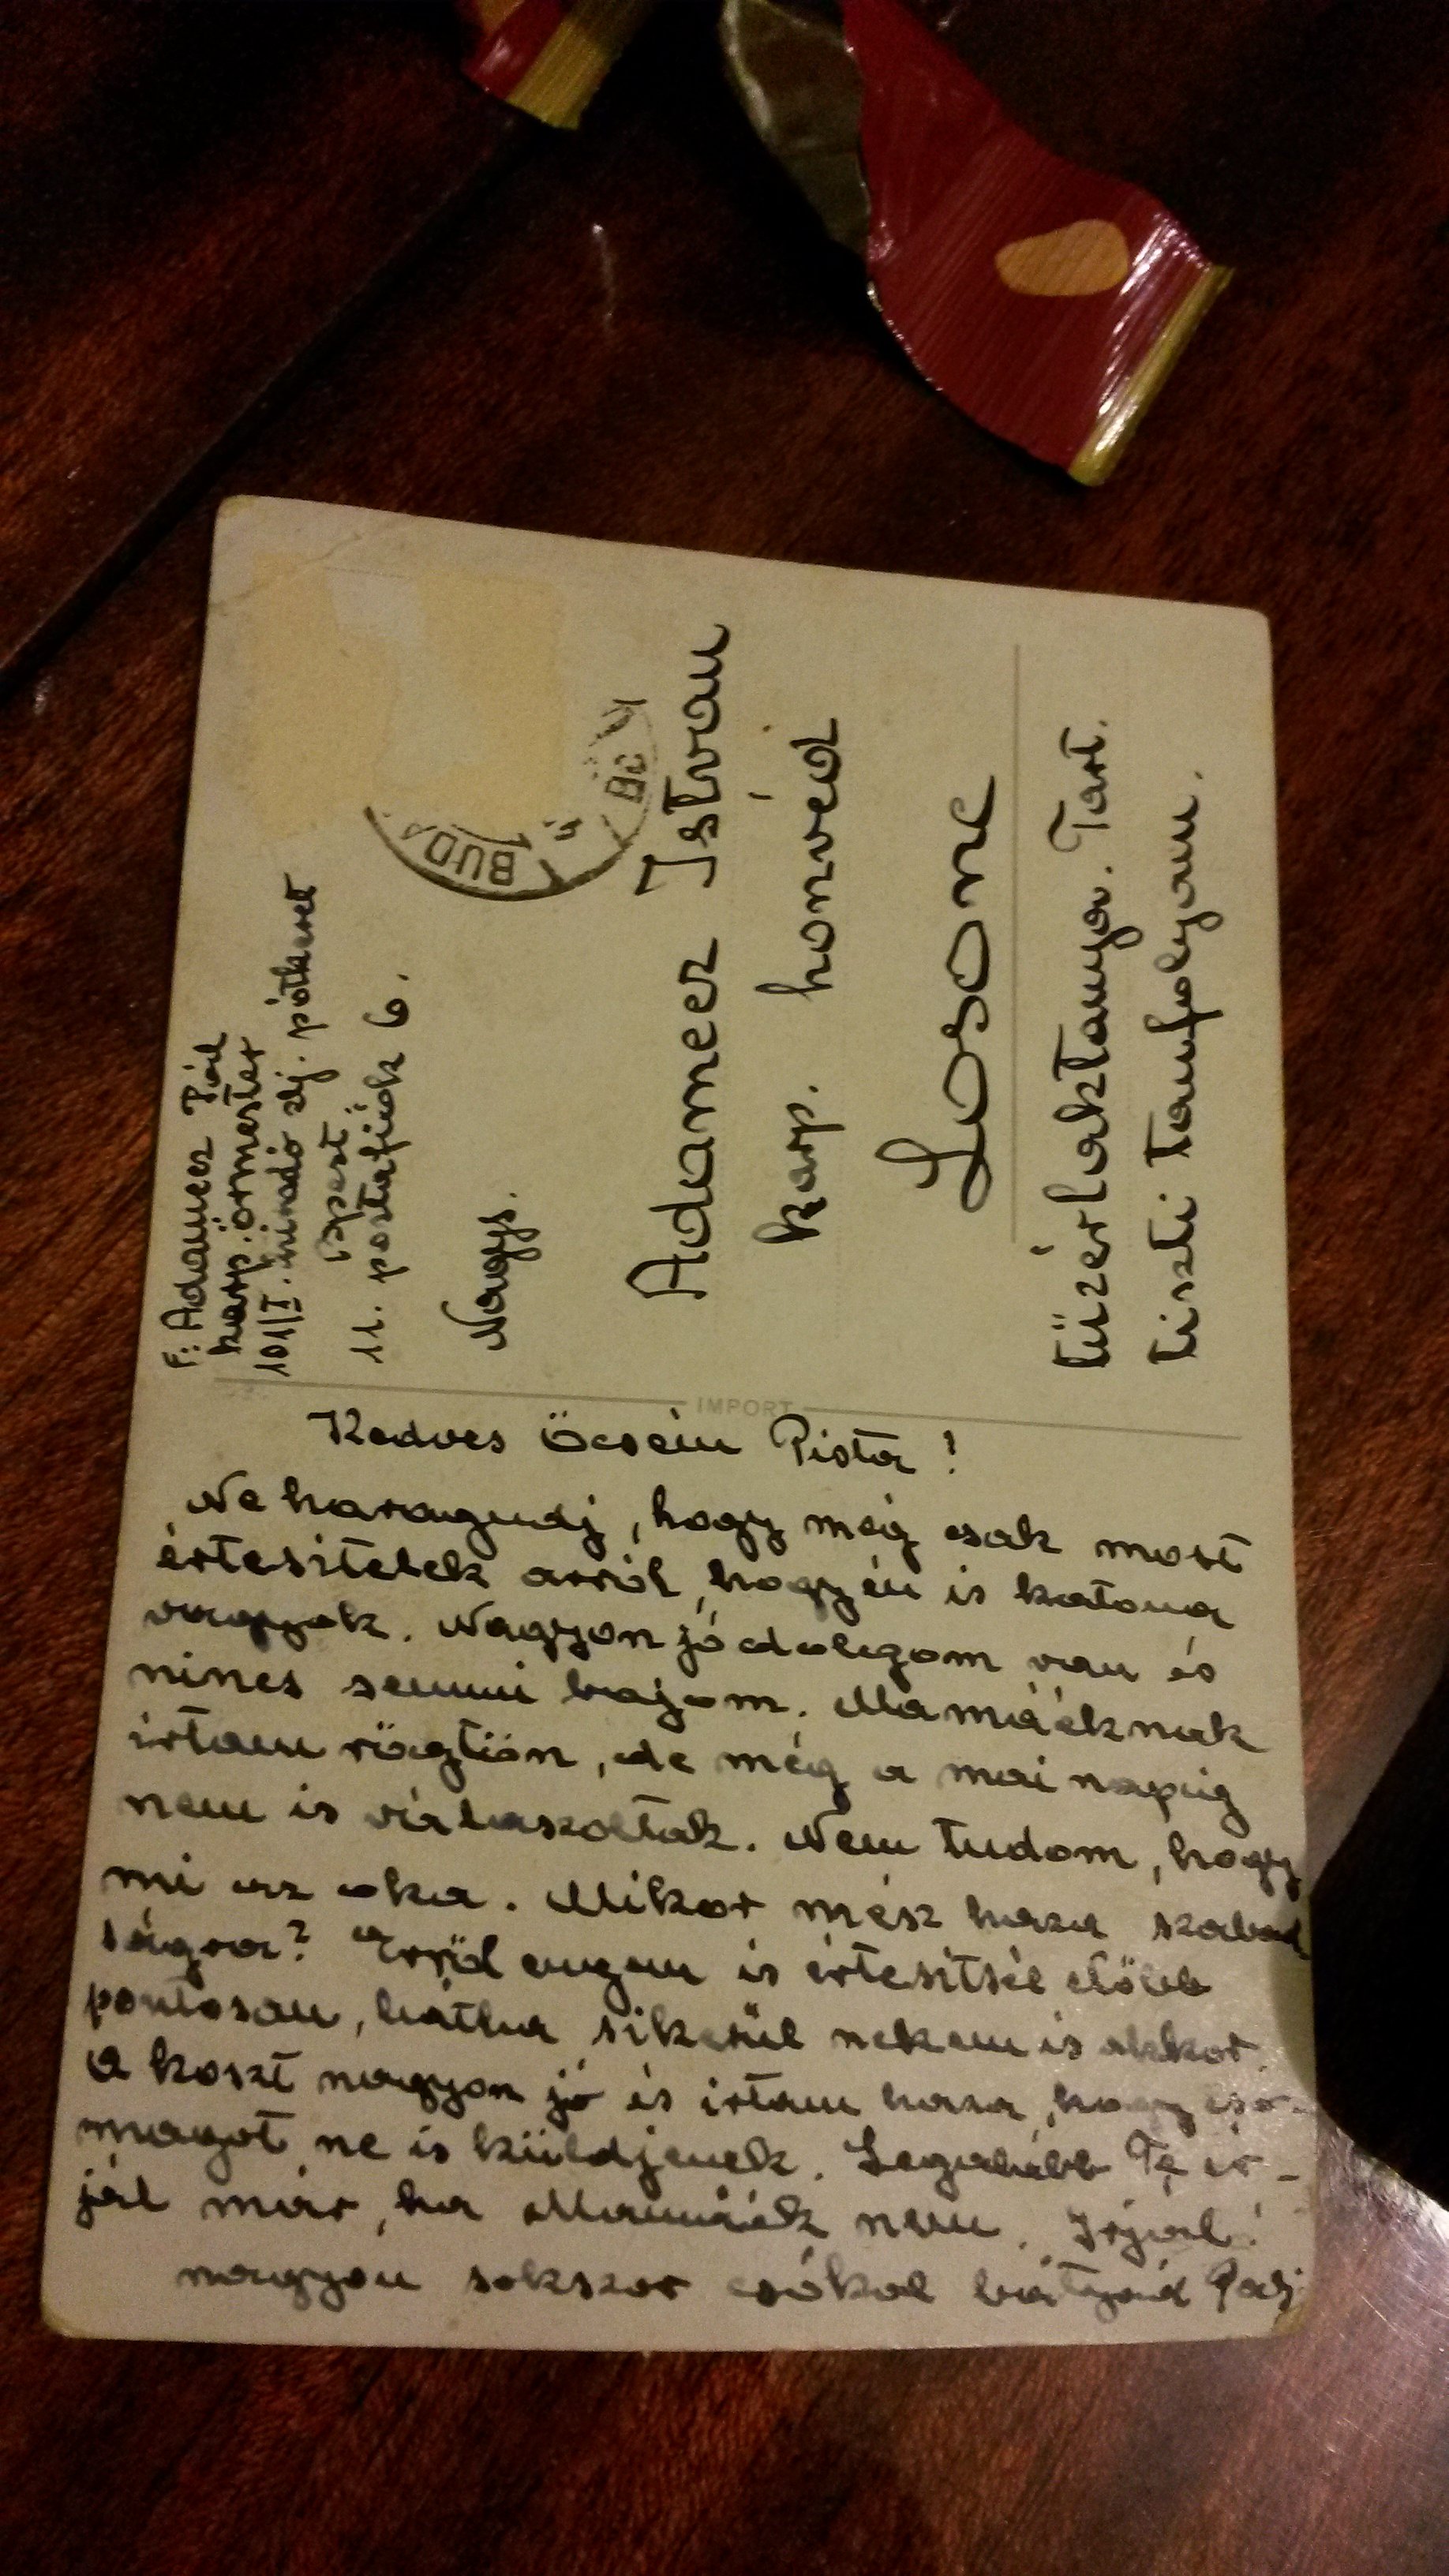 F.: Adamer Pál
karp. őrmester
101/I. hiradó zlj. pótkeret
Bpest
11. postafiók 6.
BUDA
Nagys.
Adamer István
karp. honvéd
Losonc
tüzérlaktanya. Tart.
tiszti tanfolyam.
IMPORT
Kedves Öcsém Pista!
Ne haragudj, hogy még csak most
értesitelek arról, hogy én is katona
vagyok. Nagyon jó dolgom van és
nincs semmi bajom. Mamáéknak
irtam rögtön, de még a mai napig
nem is válaszoltak. Nem tudom, hogy
mi az oka. Mikor mész haza szabad
ságra? Erről engem is értesitsél előbb
pontosan, hátha sikerül nekem is akkor.
A koszt nagyon jó és irtam haza, hogy cso-
magot ne is küldjenek. Legalább Te ir-
jál már, ha Mamáék nem. Irjál!
nagyon sokszor csókol bátyád Pali